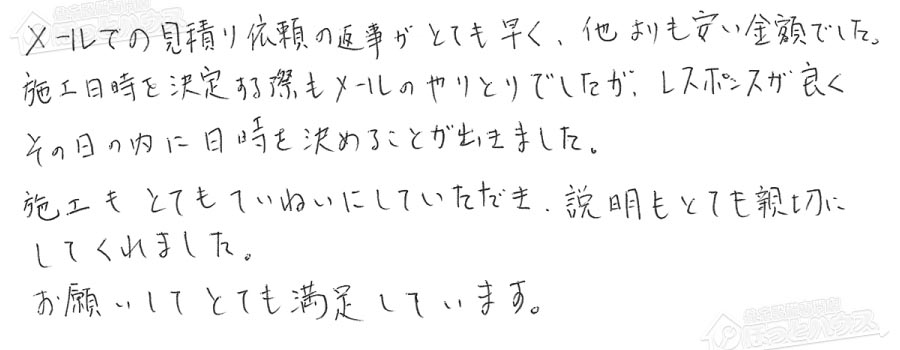 メールでの見積り依頼の返事がとても早く、他よりも安い金額でした。
施工日時を決定する際もメールのやりとりでしたが、レスポンスが良く
その日の内に日時を決めることが出きました。
施工もとてもていねいにしていただき、説明もとても親切に
してくれました。
お願いしてとても満足しています。
ほっとハウス